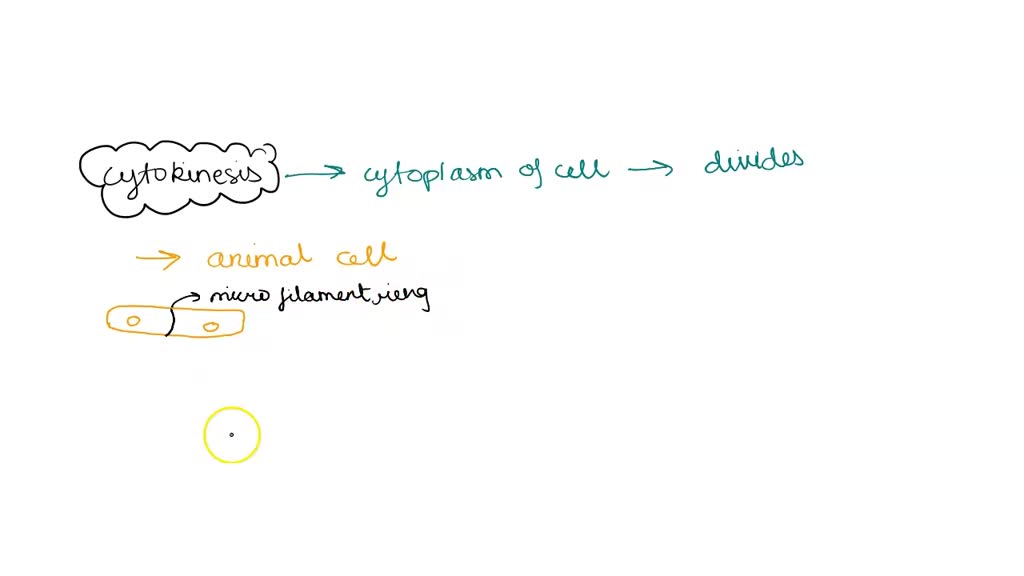 cytokinesis → cytoplasm of cell → divides
→ animal cell
micro filament, rieng